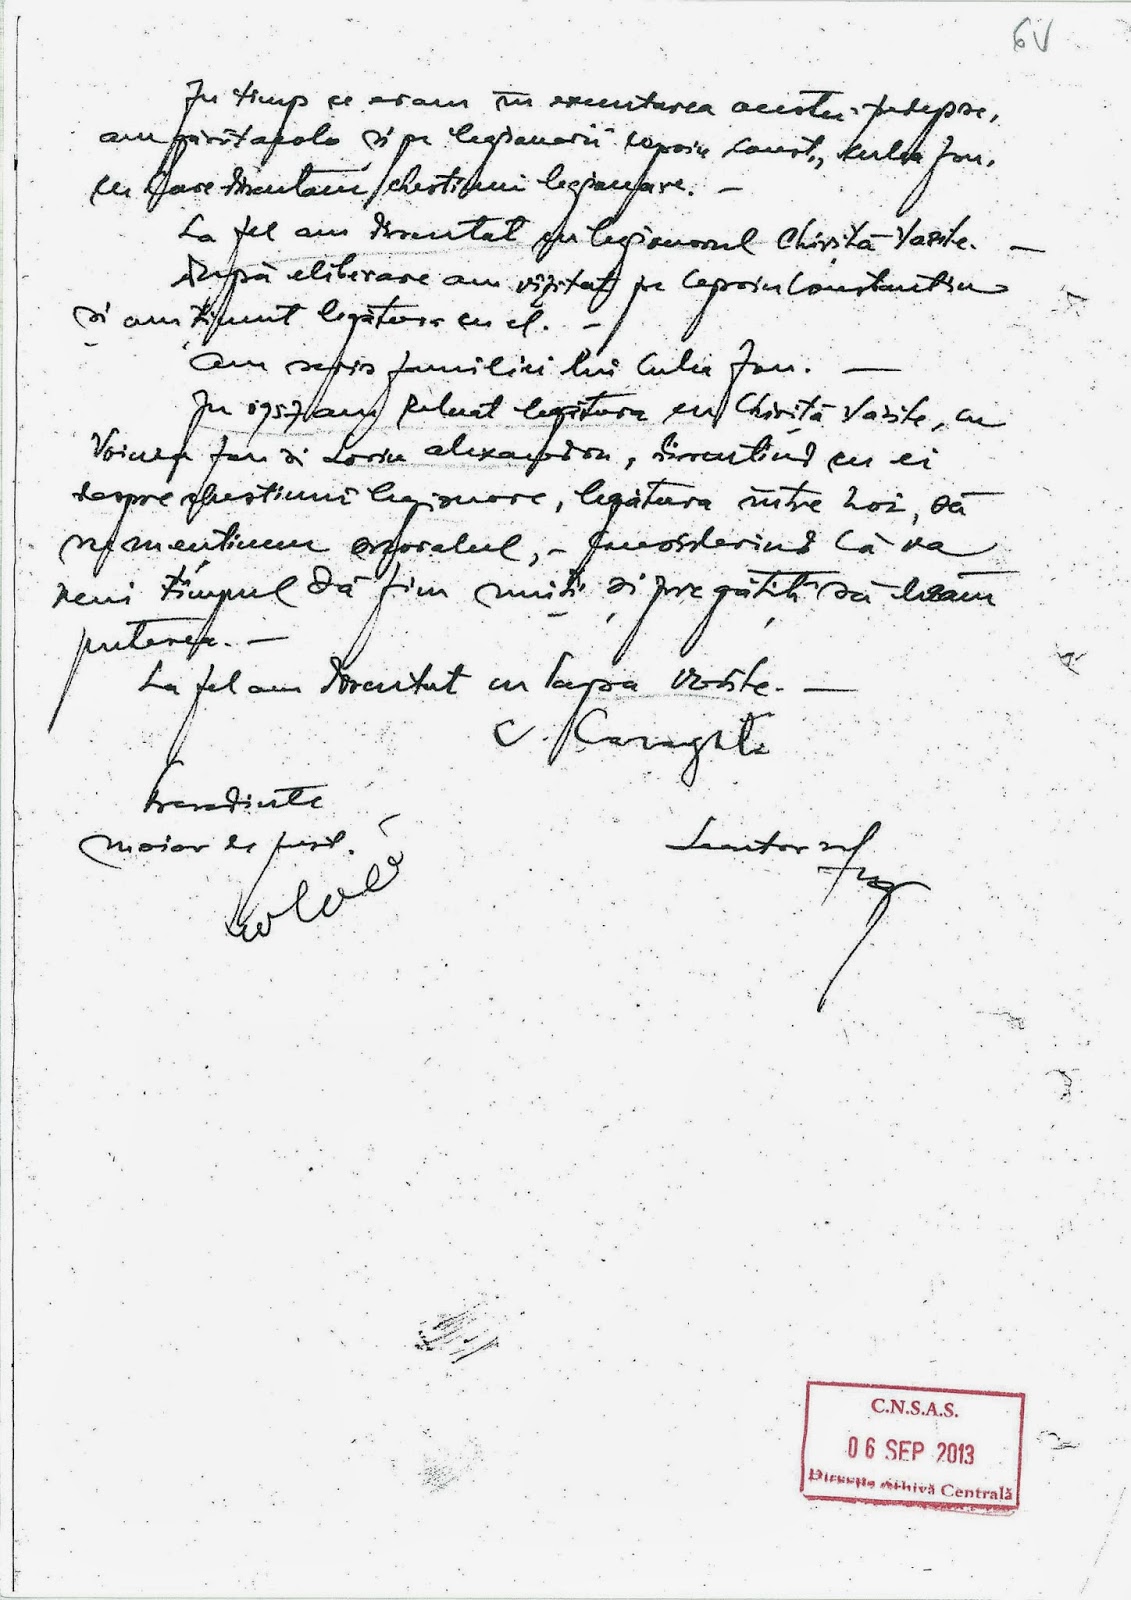 6V
In timp ce eram în executarea acestei pedepse,
am pe legionarii Const., Culea Ion,
cu care discutam chestiuni legionare. —
La fel am discutat cu legionarul Chiriță Vasile. —
După eliberare am vizitat pe Constantin
și am ținut legătura cu el. —
Am scris familiei lui Culea Ion. —
In 1957 am reluat legătura cu Chiriță Vasile, cu
Voinea Ion și Alexandru, discutînd cu ei
despre chestiuni legionare, legătura între noi, să
ne menținem moralul, – considerînd că va
veni timpul să fim uniți și pregătiți să luăm
puterea. —
La fel am discutat cu Vasile. —
C.
Președinte
maior de just.
C.N.S.A.S.
06 SEP 2013
Direcția Arhivă Centrală